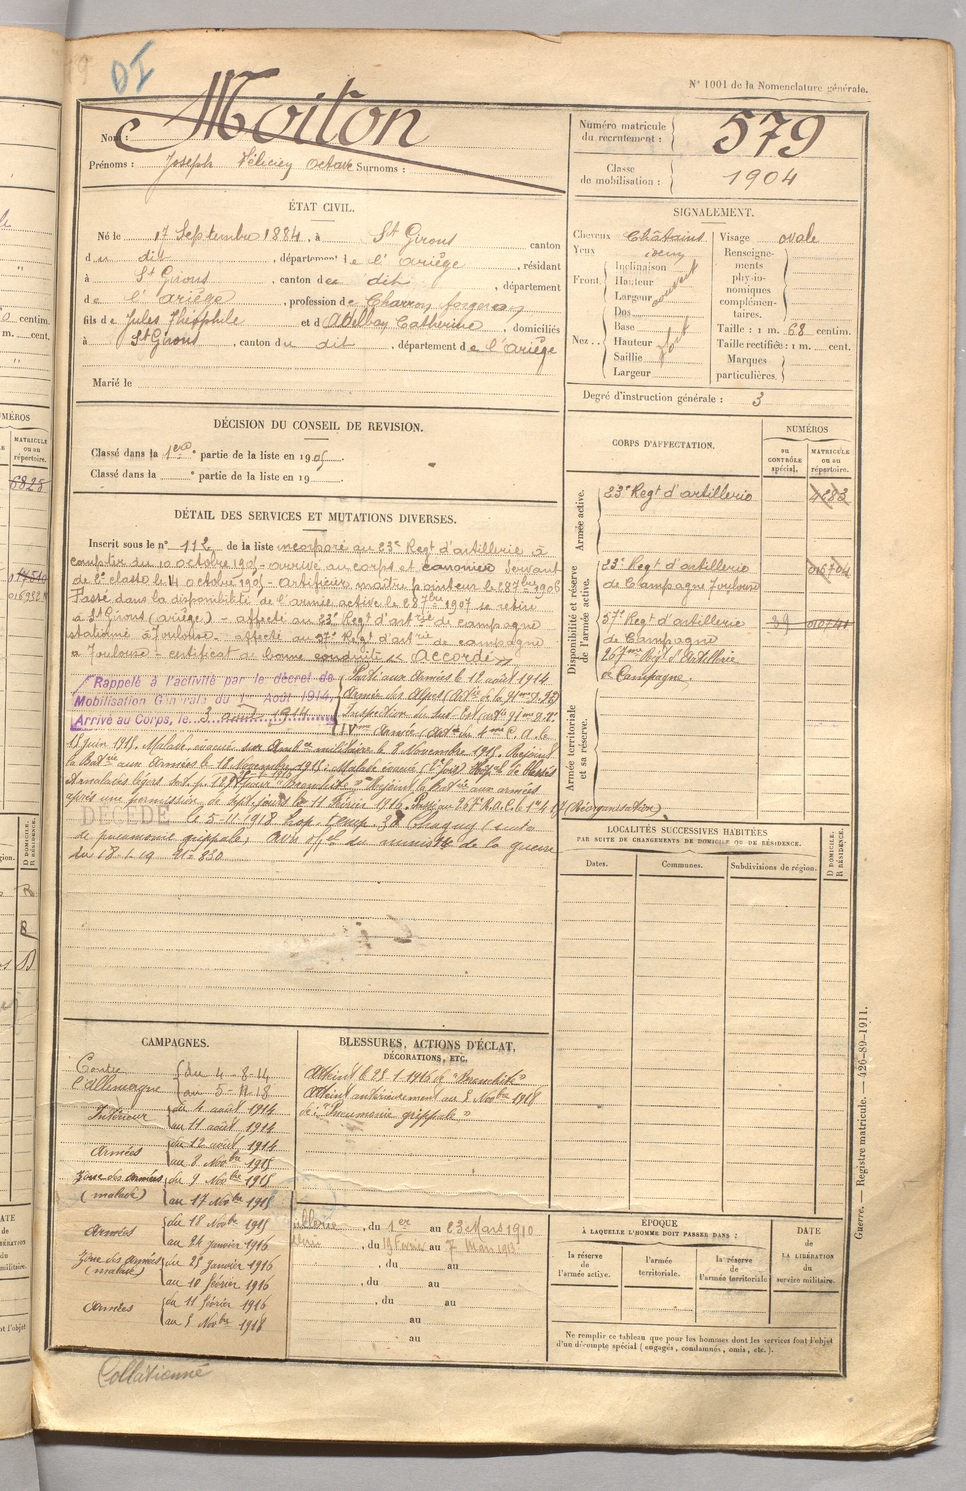 DI
N° 1001 de la Nomenclature générale.
Nom :
Moiton
Prénoms : Joseph Félicien Octave Surnoms :
Numéro matricule du recrutement : 579
Classe de mobilisation : 1904
ÉTAT CIVIL.
Né le 17 Septembre 1884, à St Girons canton
du dit, département de l'ariège, résidant
à St Girons, canton du dit, département
de l'ariège, profession de Charron forgeron
fils de Jules Théophile et d' Catherine, domiciliés
à St Girons, canton du dit, département de l'ariège
Marié le
SIGNALEMENT.
Cheveux Châtains
Yeux
Front.
Inclinaison
Hauteur
Largeur
couvert
Nez..
Dos
Base
Hauteur
Saillie
Largeur
fort
Visage ovale
Renseignements physionomiques complémentaires.
Taille : 1 m. 68 centim.
Taille rectifiée : 1 m. cent.
Marques particulières.
Degré d'instruction générale : 3
DÉCISION DU CONSEIL DE REVISION.
Classé dans la 1ere partie de la liste en 1905
Classé dans la ° partie de la liste en 19
CORPS D'AFFECTATION.
NUMÉROS
au CONTRÔLE spécial.
MATRICULE ou au répertoire.
Armée active.
23e Regt d'artillerie 4283
Disponibilité et réserve de l'armée active.
23e Regt d'artillerie 016704
de Campagne Toulouse
57e Regt d'artillerie 39 010741
de Campagne
267eme Regt d'Artillerie
de Campagne.
Armée territoriale et sa réserve.
DÉTAIL DES SERVICES ET MUTATIONS DIVERSES.
Inscrit sous le n° 112 de la liste incorporé au 23e Regt d'artillerie à
compter du 10 octobre 1905 - arrivé au corps et canonnier servant
de 2e classe le 14 octobre 1905 - Artificier, maître pointeur le 28 7bre 1906
Passé dans la disponibilité de l'armée active le 28 7bre 1907 se retire
à St Girons (ariège) - affecté au 23e Regt d'artrie de campagne
stationné à Toulouse - affecté au 57e Regt d'artrie de campagne
à Toulouse - certificat de bonne conduite « Accordé »
Rappelé à l'activité par le décret de
Mobilisation Générale du 1er Août 1914,
Arrivé au Corps, le 3 août 1914
Parti aux Armées le 12 août 1914
Armée des Alpes (Artie de la 91me D.I.)
Inspection du Sud-Est (artie 91me D.I.)
IVme Armée (Artie du 4me C.A. le
15 juin 1915. Malade, évacué sur Ambce militaire le 8 Novembre 1915. Rejoint
la Batrie aux Armées le 18 Novembre 1915. Malade évacué
"Bronchite" Rejoint la Batrie aux armées
après une permission de sept jours le 11 Février 1916. Passé au 267e R.A.C. le 1er 4 17 (Réorganisation)
DÉCÉDÉ le 5-11-1918 hop. temp. 38 Chagny (suite
de pneumonie grippale) avis offel du ministre de la guerre
du 18-1-19 N° 830
LOCALITÉS SUCCESSIVES HABITÉES
PAR SUITE DE CHANGEMENTS DE DOMICILE OU DE RÉSIDENCE.
Dates.
Communes.
Subdivisions de région.
D DOMICILE. R RÉSIDENCE.
CAMPAGNES.
Contre l'Allemagne
du 4-8-14
au 5-11-18
Intérieur
du 4 août 1914
au 11 août 1914
Armées
du 12 août 1914
au 8 Novbre 1915
Zône des armées (malade)
du 9 Novbre 1915
au 17 Novbre 1915
Armées
du 18 Novbre 1915
au 24 janvier 1916
Zône des armées (malade)
du 25 janvier 1916
au 10 février 1916
Armées
du 11 février 1916
au 5 Novbre 1918
BLESSURES, ACTIONS D'ÉCLAT,
DÉCORATIONS, ETC.
Atteint le 25-1-1916 de "Bronchite"
Atteint antérieurement au 5 Novbre 1918
de "Pneumonie grippale"
illerie, du 1er au 23 Mars 1910
, du 19 Février au 7 Mars
, du au
, du au
, du au
au
au
ÉPOQUE
À LAQUELLE L'HOMME DOIT PASSER DANS :
la réserve de l'armée active.
l'armée territoriale.
la réserve de l'armée territoriale
DATE de LA LIBÉRATION du service militaire.
Ne remplir ce tableau que pour les hommes dont les services font l'objet
d'un décompte spécial (engagés, condamnés, omis, etc.).
Guerre. — Registre matricule. — 426-89-1911.
Collationné